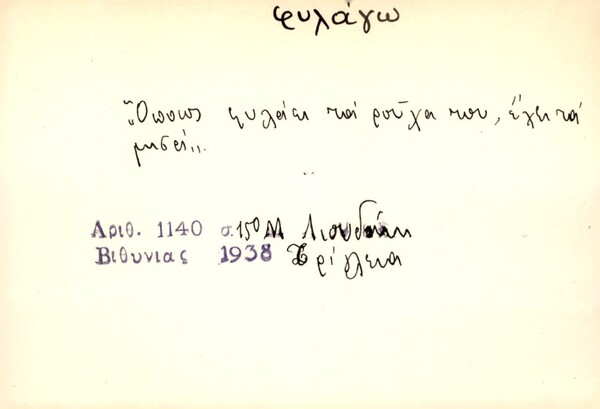 φυλάγω
"Όποιος φυλάει τά ροῦχα του, ἔχει τά
μισά".
Αριθ. 1140 σ.150 Μ Λιουδάκη
Βιθυνιας 1938 Τρίγλεια